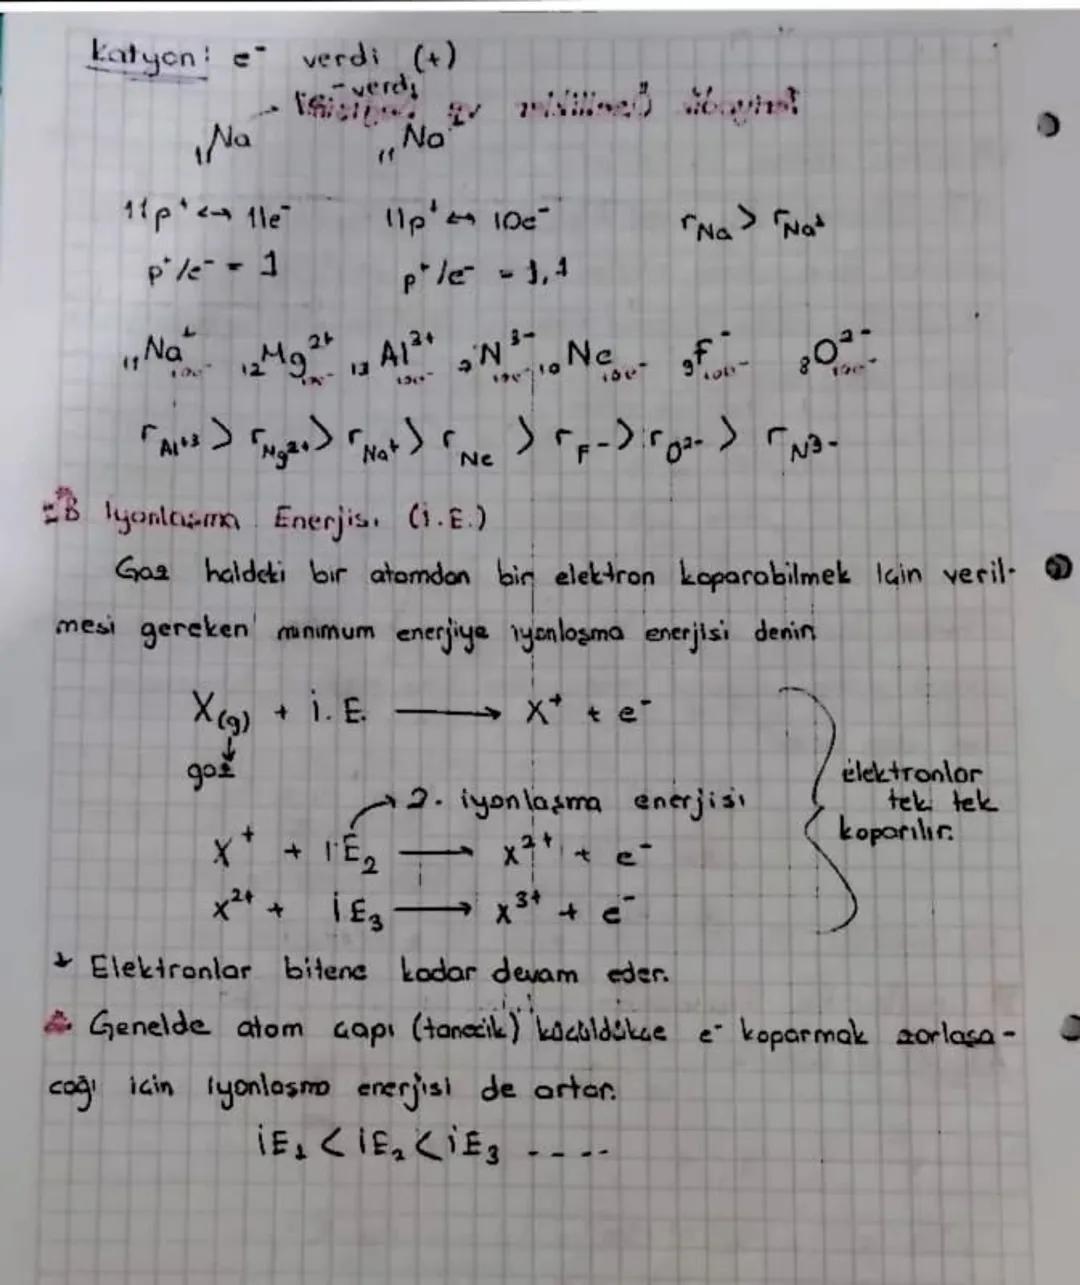 Katyon: e⁻ verdi (+)
-verdi
₁₁Na ₁₁Na⁺
11p⁺ ↔ 11e⁻ 11p⁺ ↔ 10e⁻ rNa > rNa⁺
p⁺/e⁻ = 1 p⁺/e⁻ = 1,1
₁₁Na⁺ ₁₂Mg²⁺ ₁₃Al³⁺ N³⁻ ₁₀Ne ₉F⁻ ₈O²⁻
10e⁻ 10e⁻ 10e⁻ 10e⁻ 10e⁻ 10e⁻ 10e⁻
rAl⁺³ > rMg²⁺ > rNa⁺ > rNe > rF⁻ > rO²⁻ > rN³⁻
B İyonlaşma Enerjisi (İ.E.)
Gaz haldeki bir atomdan bir elektron koparabilmek için veril-
mesi gereken minimum enerjiye iyonlaşma enerjisi denir
X(g) + İ.E. ⟶ X⁺ + e⁻
gaz
elektronlar
tek tek
koparılır.
2. iyonlaşma enerjisi
X⁺ + İE₂ ⟶ X²⁺ + e⁻
X²⁺ + İE₃ ⟶ X³⁺ + e⁻
* Elektronlar bitene kadar devam eder.
Genelde atom çapı (tanecik) küçüldükçe e⁻ koparmak zorlaşa-
cağı için iyonlaşma enerjisi de artar.
İE₁ < İE₂ < İE₃ ----